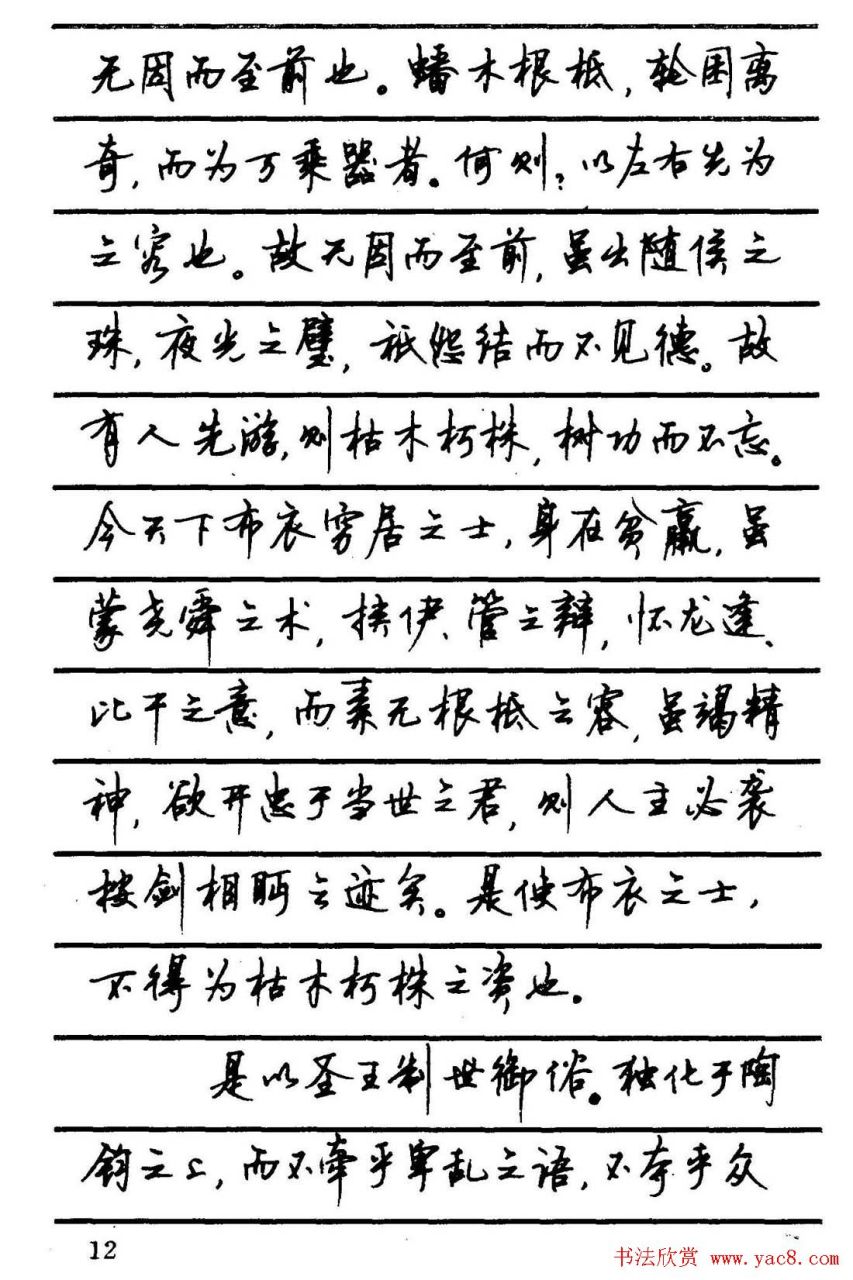 无因而至前也。蟠木根柢,轮囷离
奇,而为万乘器者。何则?以左右先为
之容也。故无因而至前,虽出随侯之
珠,夜光之璧,祗怨结而不见德。故
有人先游,则枯木朽株,树功而不忘。
今天下布衣穷居之士,身在贫羸,虽
蒙尧舜之术,挟伊、管之辩,怀龙逢、
比干之意,而素无根柢之容,虽竭精
神,欲开忠于当世之君,则人主必袭
按剑相眄之迹矣。是使布衣之士,
不得为枯木朽株之资也。
是以圣王制世御俗。独化于陶
钧之上,而不牵乎卑乱之语,不夺乎众
12
书法欣赏 www.yac8.com